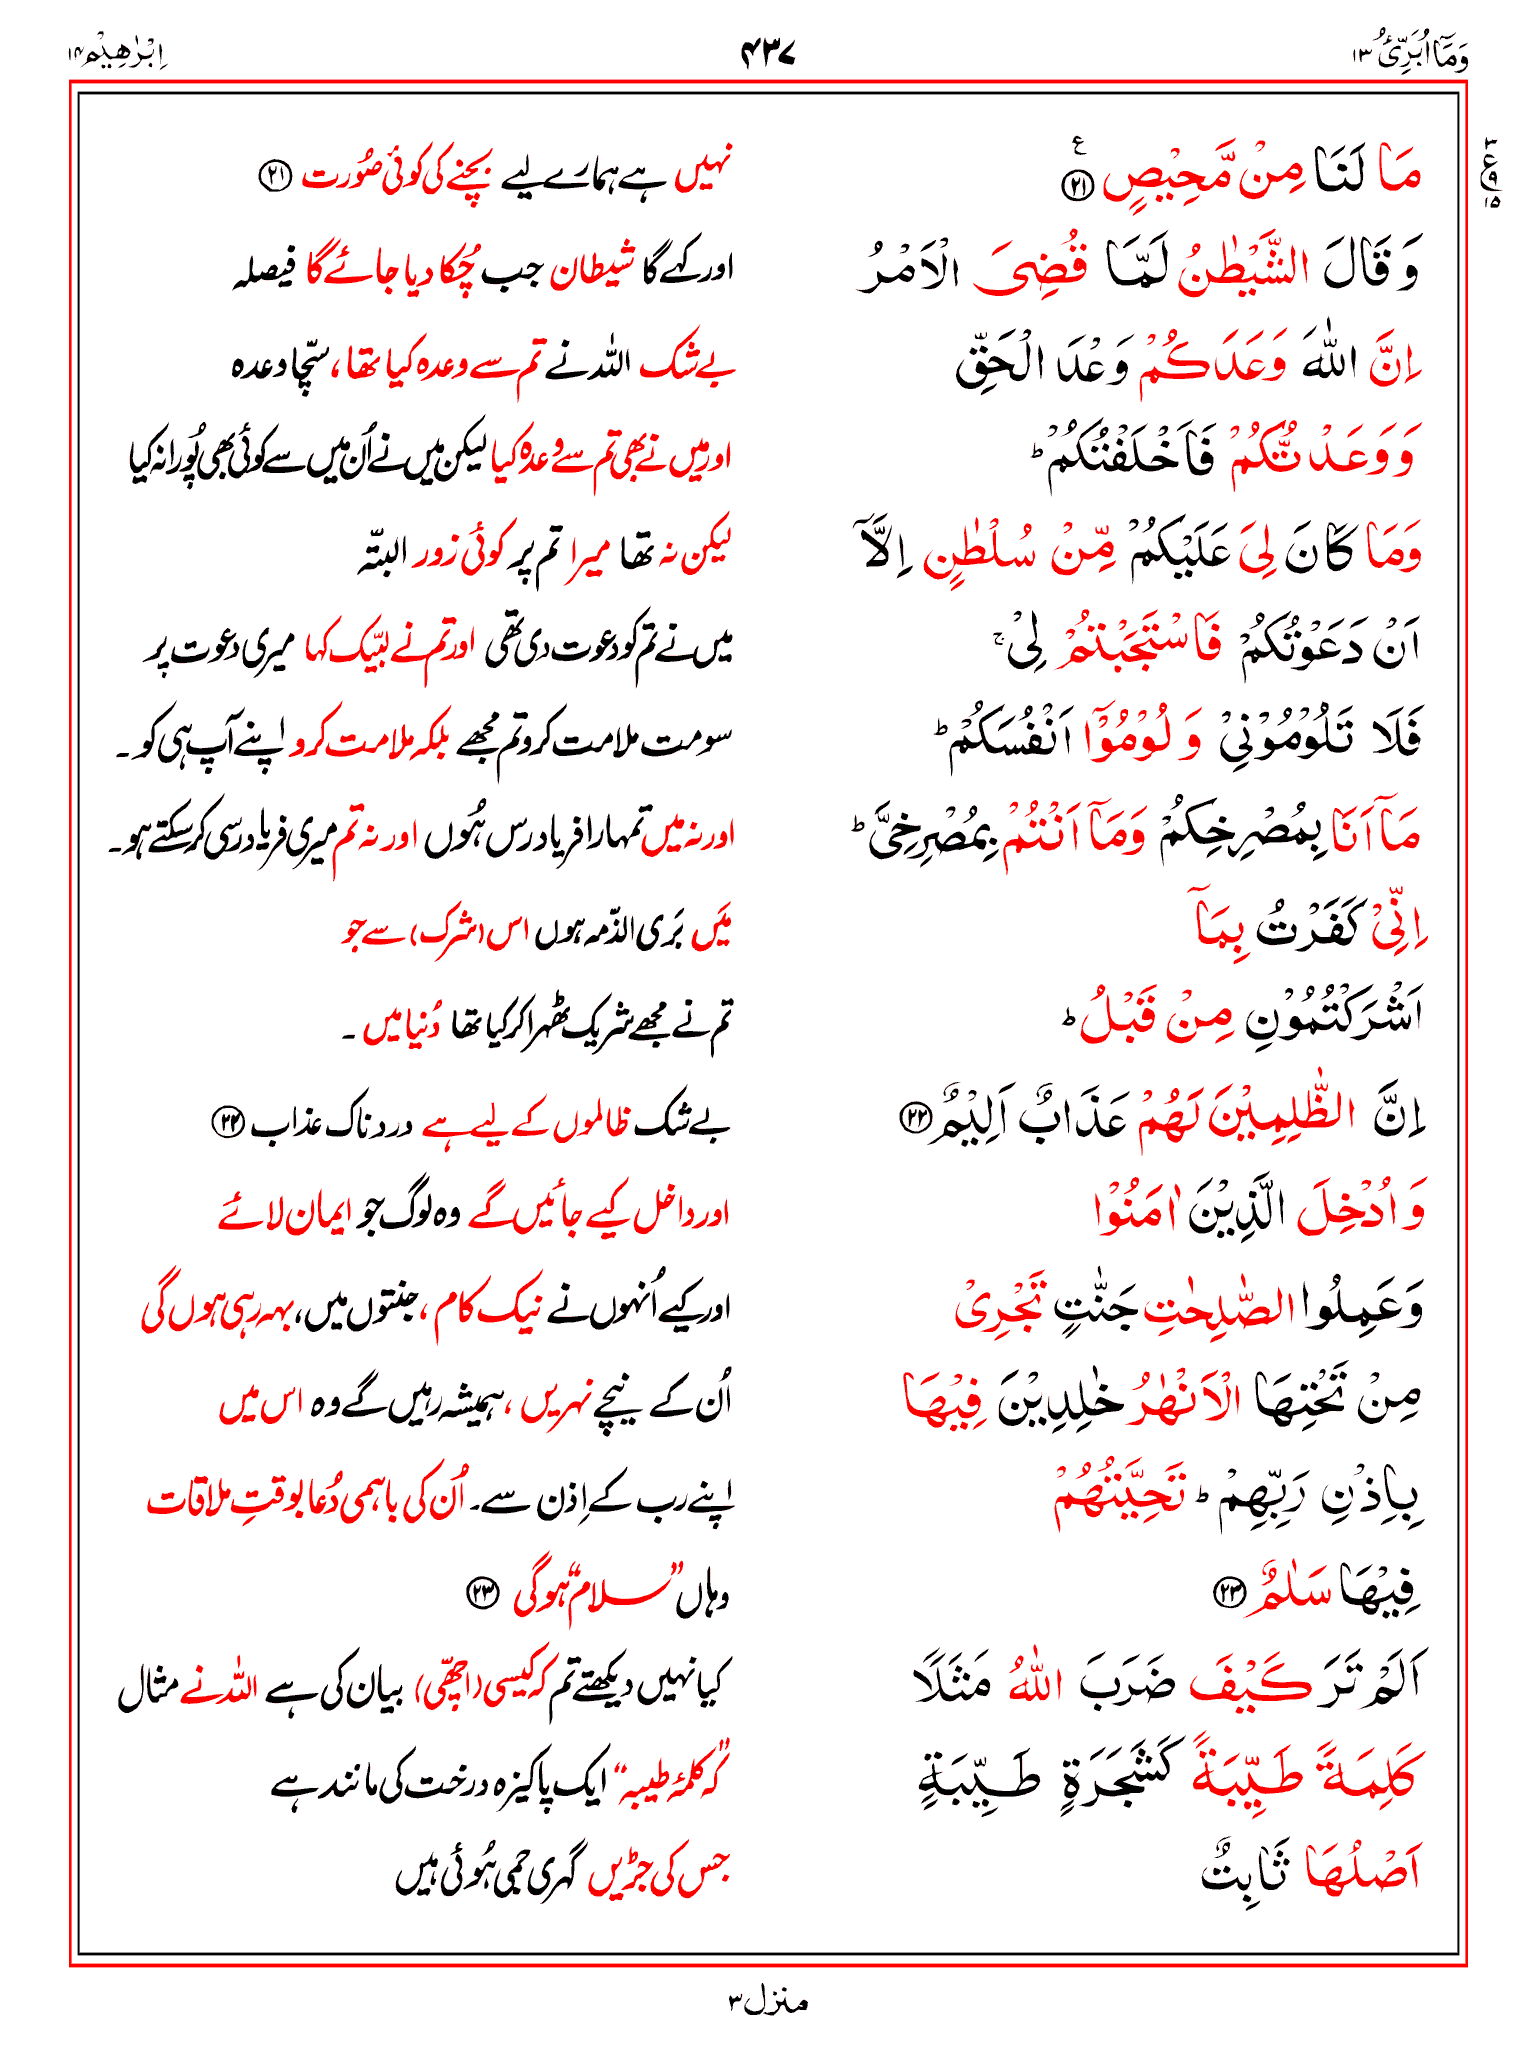 وَمَاۤ اُبَرِّئُ ۱۳
۴۳۷
اِبْرٰهِيْم ۱۴
مَا لَنَا مِنْ مَّحِيْصٍ ﴿۲۱﴾ ع
نہیں ہے ہمارے لیے بچنے کی کوئی صُورت ﴿۲۱﴾
وَ قَالَ الشَّيْطٰنُ لَمَّا قُضِىَ الْاَمْرُ
اور کہے گا شیطان جب چُکا دیا جائے گا فیصلہ
اِنَّ اللّٰهَ وَعَدَكُمْ وَعْدَ الْحَقِّ
بے شک اللہ نے تم سے وعدہ کیا تھا، سچّا وعدہ
وَوَعَدْتُّكُمْ فَاَخْلَفْتُكُمْ ؕ
اور میں نے بھی تم سے وعدہ کیا لیکن میں نے اُن میں سے کوئی بھی پُورا نہ کیا
وَمَا كَانَ لِىَ عَلَيْكُمْ مِّنْ سُلْطٰنٍ اِلَّاۤ
لیکن نہ تھا میرا تم پر کوئی زور البتّہ
اَنْ دَعَوْتُكُمْ فَاسْتَجَبْتُمْ لِىْ ۚ
میں نے تم کو دعوت دی تھی اور تم نے لبّیک کہا میری دعوت پر
فَلَا تَلُوْمُوْنِىْ وَ لُوْمُوْۤا اَنْفُسَكُمْ ؕ
سو مت ملامت کرو تم مجھے بلکہ ملامت کرو اپنے آپ ہی کو ۔
مَاۤ اَنَا بِمُصْرِخِكُمْ وَمَاۤ اَنْتُمْ بِمُصْرِخِىَّ ؕ
اور نہ میں تمہارا فریاد رس ہُوں اور نہ تم میری فریاد رسی کر سکتے ہو۔
اِنِّىْ كَفَرْتُ بِمَاۤ
مَیں بَری الذّمہ ہوں اس (شرک) سے جو
اَشْرَكْتُمُوْنِ مِنْ قَبْلُ ؕ
تم نے مجھے شریک ٹھہرا کر کیا تھا دُنیا میں ۔
اِنَّ الظّٰلِمِيْنَ لَهُمْ عَذَابٌ اَلِيْمٌ ﴿۲۲﴾
بے شک ظالموں کے لیے ہے دردناک عذاب ﴿۲۲﴾
وَ اُدْخِلَ الَّذِيْنَ اٰمَنُوْا
اور داخل کیے جائیں گے وہ لوگ جو ایمان لائے
وَعَمِلُوا الصّٰلِحٰتِ جَنّٰتٍ تَجْرِىْ
اور کیے اُنہوں نے نیک کام، جنتوں میں، بہہ رہی ہوں گی
مِنْ تَحْتِهَا الْاَنْهٰرُ خٰلِدِيْنَ فِيْهَا
اُن کے نیچے نہریں، ہمیشہ رہیں گے وہ اس میں
بِاِذْنِ رَبِّهِمْ ؕ تَحِيَّتُهُمْ
اپنے رب کے اِذن سے۔ اُن کی باہمی دُعا بوقتِ ملاقات
فِيْهَا سَلٰمٌ ﴿۲۳﴾
وہاں ”سلام“ ہوگی ﴿۲۳﴾
اَلَمْ تَرَ كَيْفَ ضَرَبَ اللّٰهُ مَثَلًا
کیا نہیں دیکھتے تم کہ کیسی (اچھّی) بیان کی ہے اللہ نے مثال
كَلِمَةً طَيِّبَةً كَشَجَرَةٍ طَيِّبَةٍ
کہ ”کلمۂ طیبہ“ ایک پاکیزہ درخت کی مانند ہے
اَصْلُهَا ثَابِتٌ
جس کی جڑیں گہری جمی ہُوئی ہیں
منزل ۳